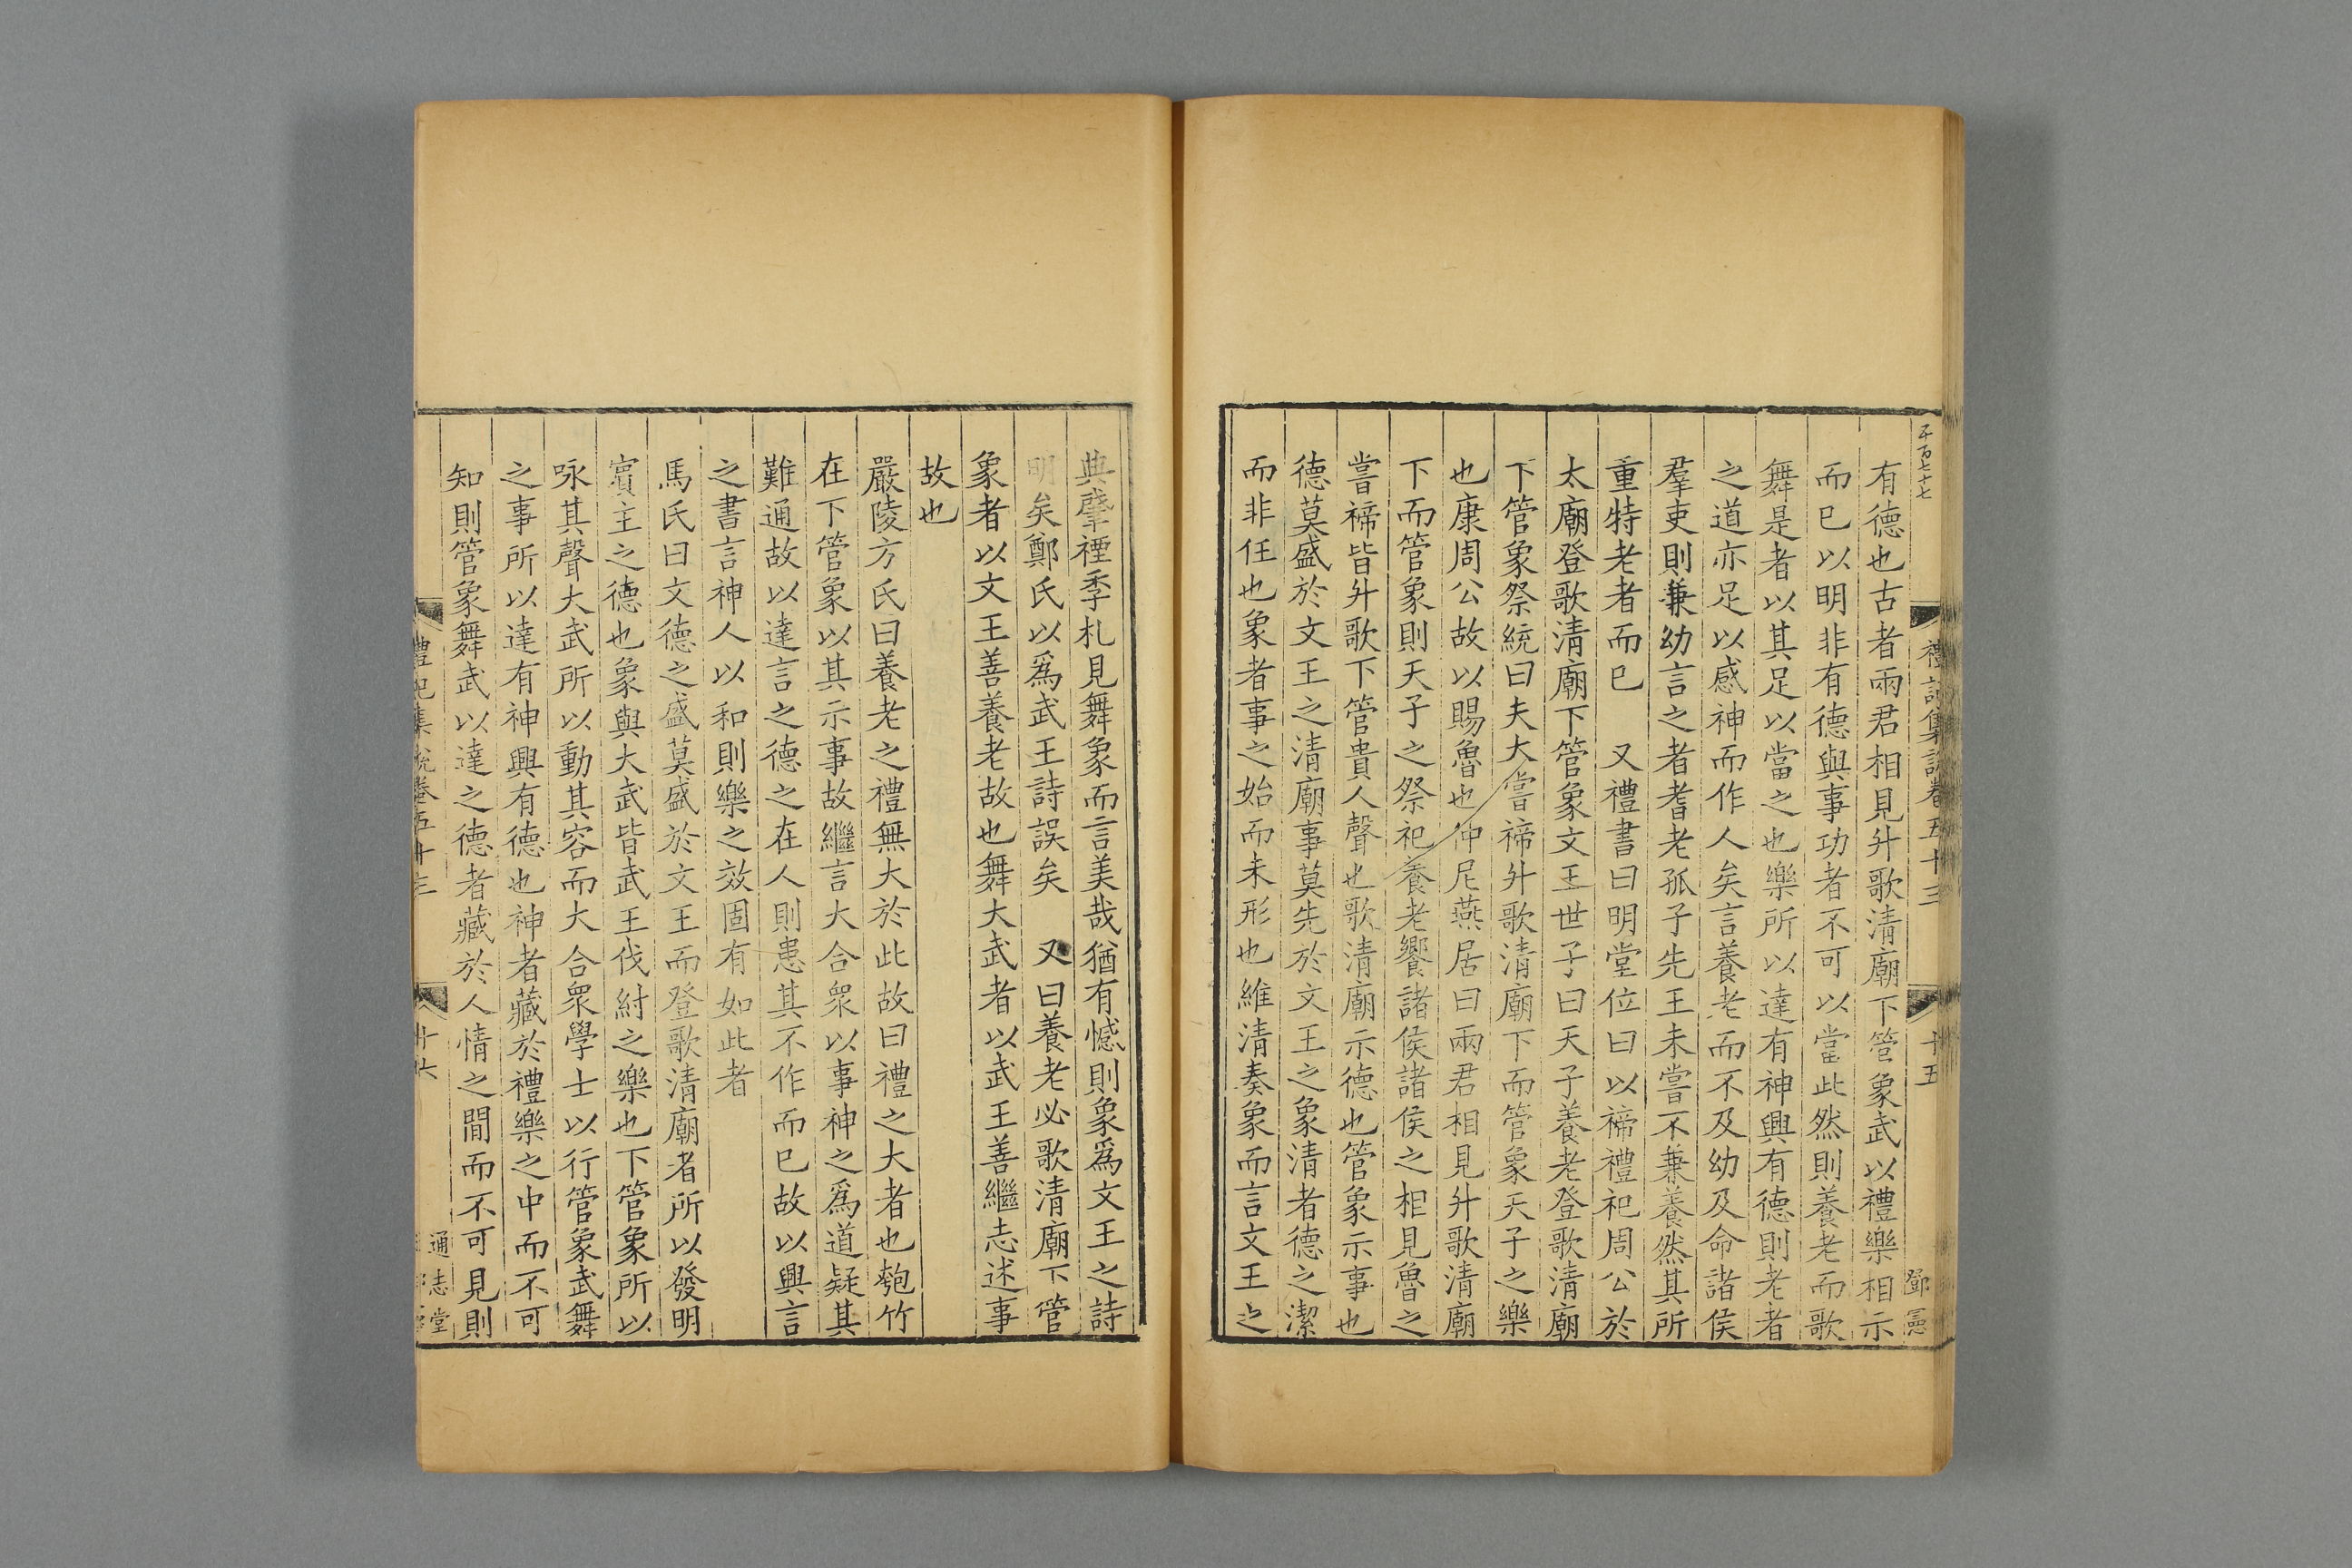 有德也古者兩君相見升歌清廟下管象武以禮樂相示
而已以明非有德與事功者不可以當此然則養老而歌
舞是者以其足以當之也樂所以達有神興有德則老者
之道亦足以感神而作人矣言養老而不及幼及命諸侯
羣吏則兼幼言之者耆老孤子先王未嘗不兼養然其所
重特老者而已 又禮書曰明堂位曰以禘禮祀周公於
太廟登歌清廟下管象文王世子曰天子養老登歌清廟
下管象祭統曰夫大嘗禘升歌清廟下而管象天子之樂
也康周公故以賜魯也仲尼燕居曰兩君相見升歌清廟
下而管象則天子之祭祀養老饗諸侯諸侯之相見魯之
嘗禘皆升歌下管貴人聲也歌清廟示德也管象示事也
德莫盛於文王之清廟事莫先於文王之象清者德之潔
而非任也象者事之始而未形也維清奏象而言文王之
典肇禋季札見舞象而言美哉猶有憾則象爲文王之詩
明矣鄭氏以爲武王詩誤矣 又曰養老必歌清廟下管
象者以文王善養老故也舞大武者以武王善繼志述事
故也
嚴陵方氏曰養老之禮無大於此故曰禮之大者也匏竹
在下管象以其示事故繼言大合衆以事神之爲道疑其
難通故以達言之德之在人則患其不作而已故以興言
之書言神人以和則樂之效固有如此者
馬氏曰文德之盛莫盛於文王而登歌清廟者所以發明
賓主之德也象與大武皆武王伐紂之樂也下管象所以
咏其聲大武所以動其容而大合衆學士以行管象武舞
之事所以達有神興有德也神者藏於禮樂之中而不可
知則管象舞武以達之德者藏於人情之間而不可見則
禮記集說卷五十三
十五
鄧
禮記集說卷五十三
十六
通志堂